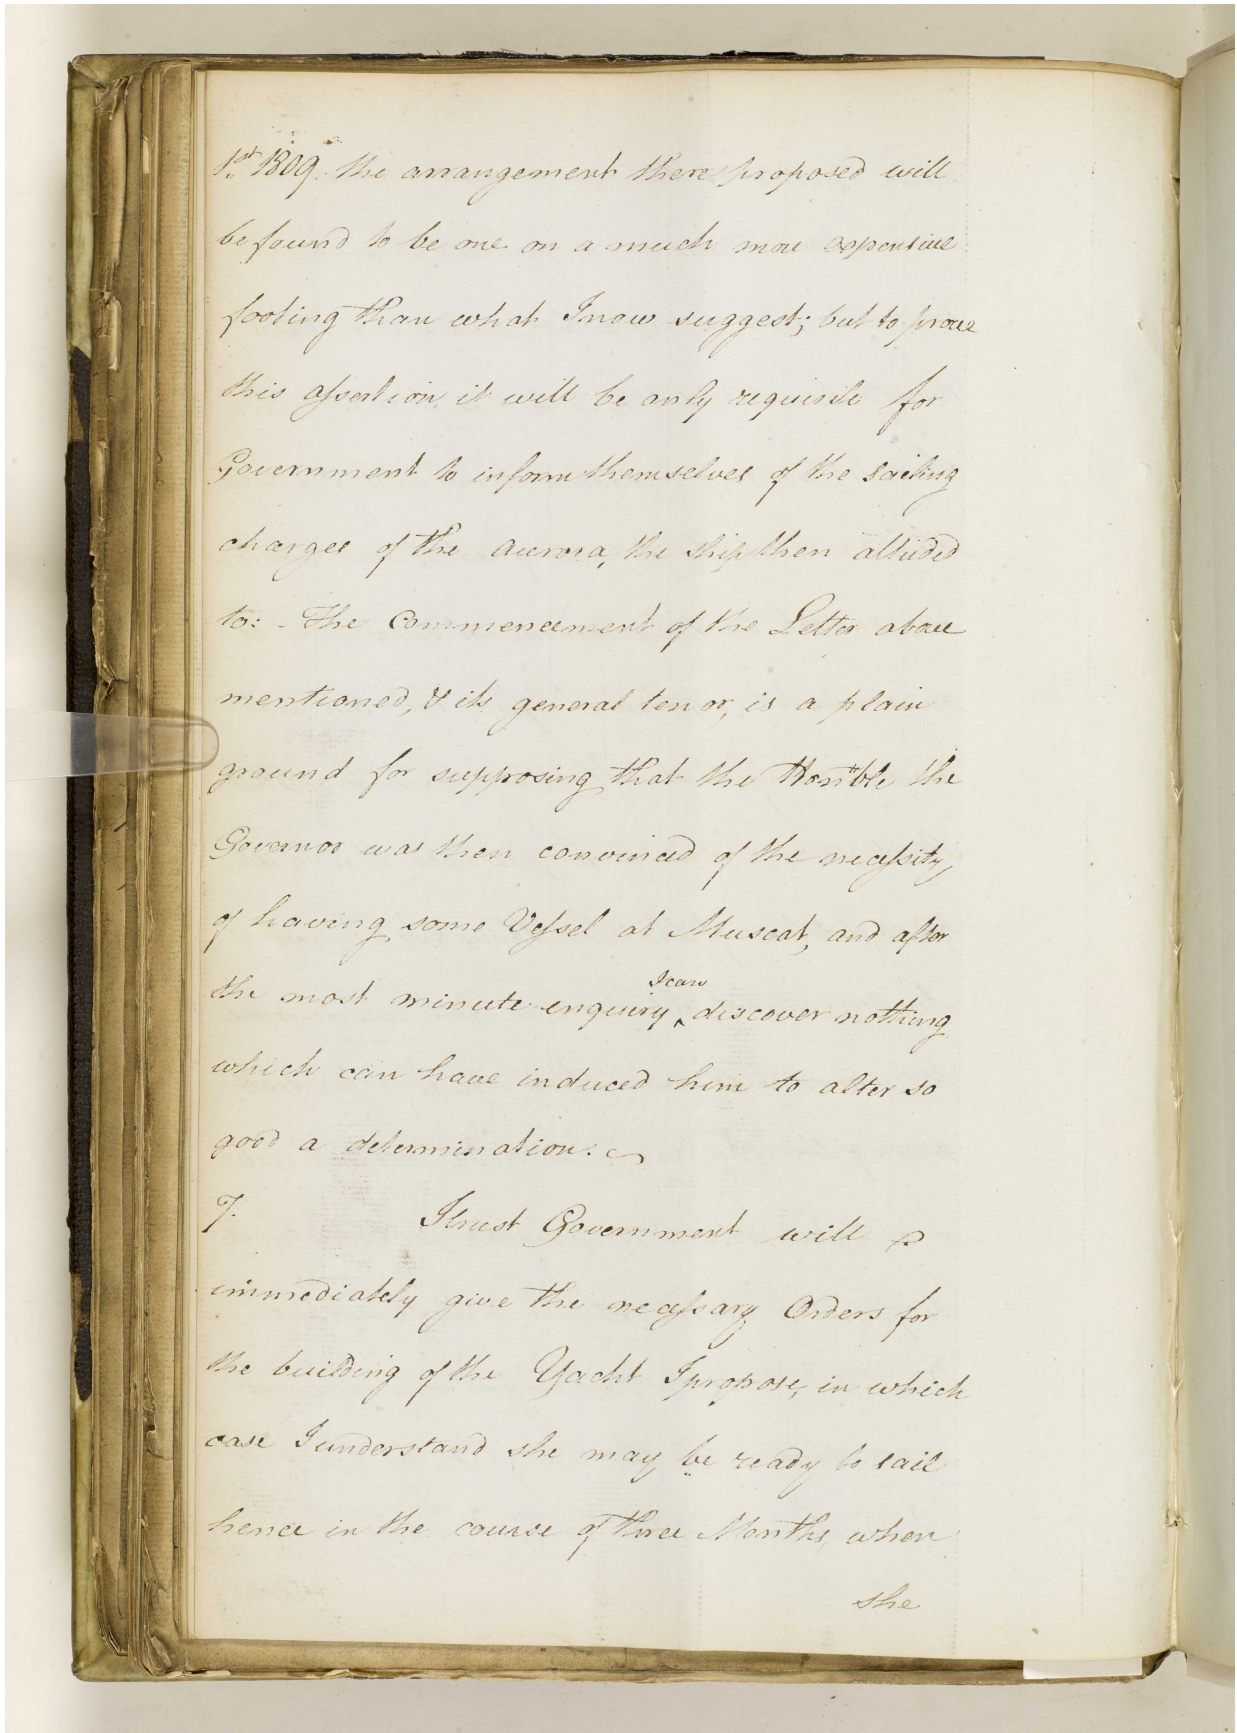 1st. 1809. the arrangement there proposed will
be found to be one on a much more expensive
footing than what I now suggest; but to prove
this assertion, it will be only requisite for
Government to inform themselves of the sailing
charges of the Aurora, the ship then alluded
to: - The Commencement of the Letter above
mentioned, & its general tenor, is a plain
ground for supposing that the Honble the
Governor was then convinced of the necessity,
of having some Vessel at Muscat, and after
the most minute enquiry ^ I can discover nothing
which can have induced him to alter so
good a determination:
7. I trust Government will
immediately give the necessary Orders for
the building of the Yacht I propose, in which
case I understand she may be ready to sail
hence in the course of three Months, when
she